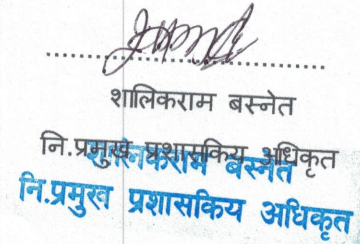 शालिकराम बस्नेत
नि.प्रमुख प्रशासकिय अधिकृत
शालिकराम बस्नेत
नि.प्रमुख प्रशासकिय अधिकृत